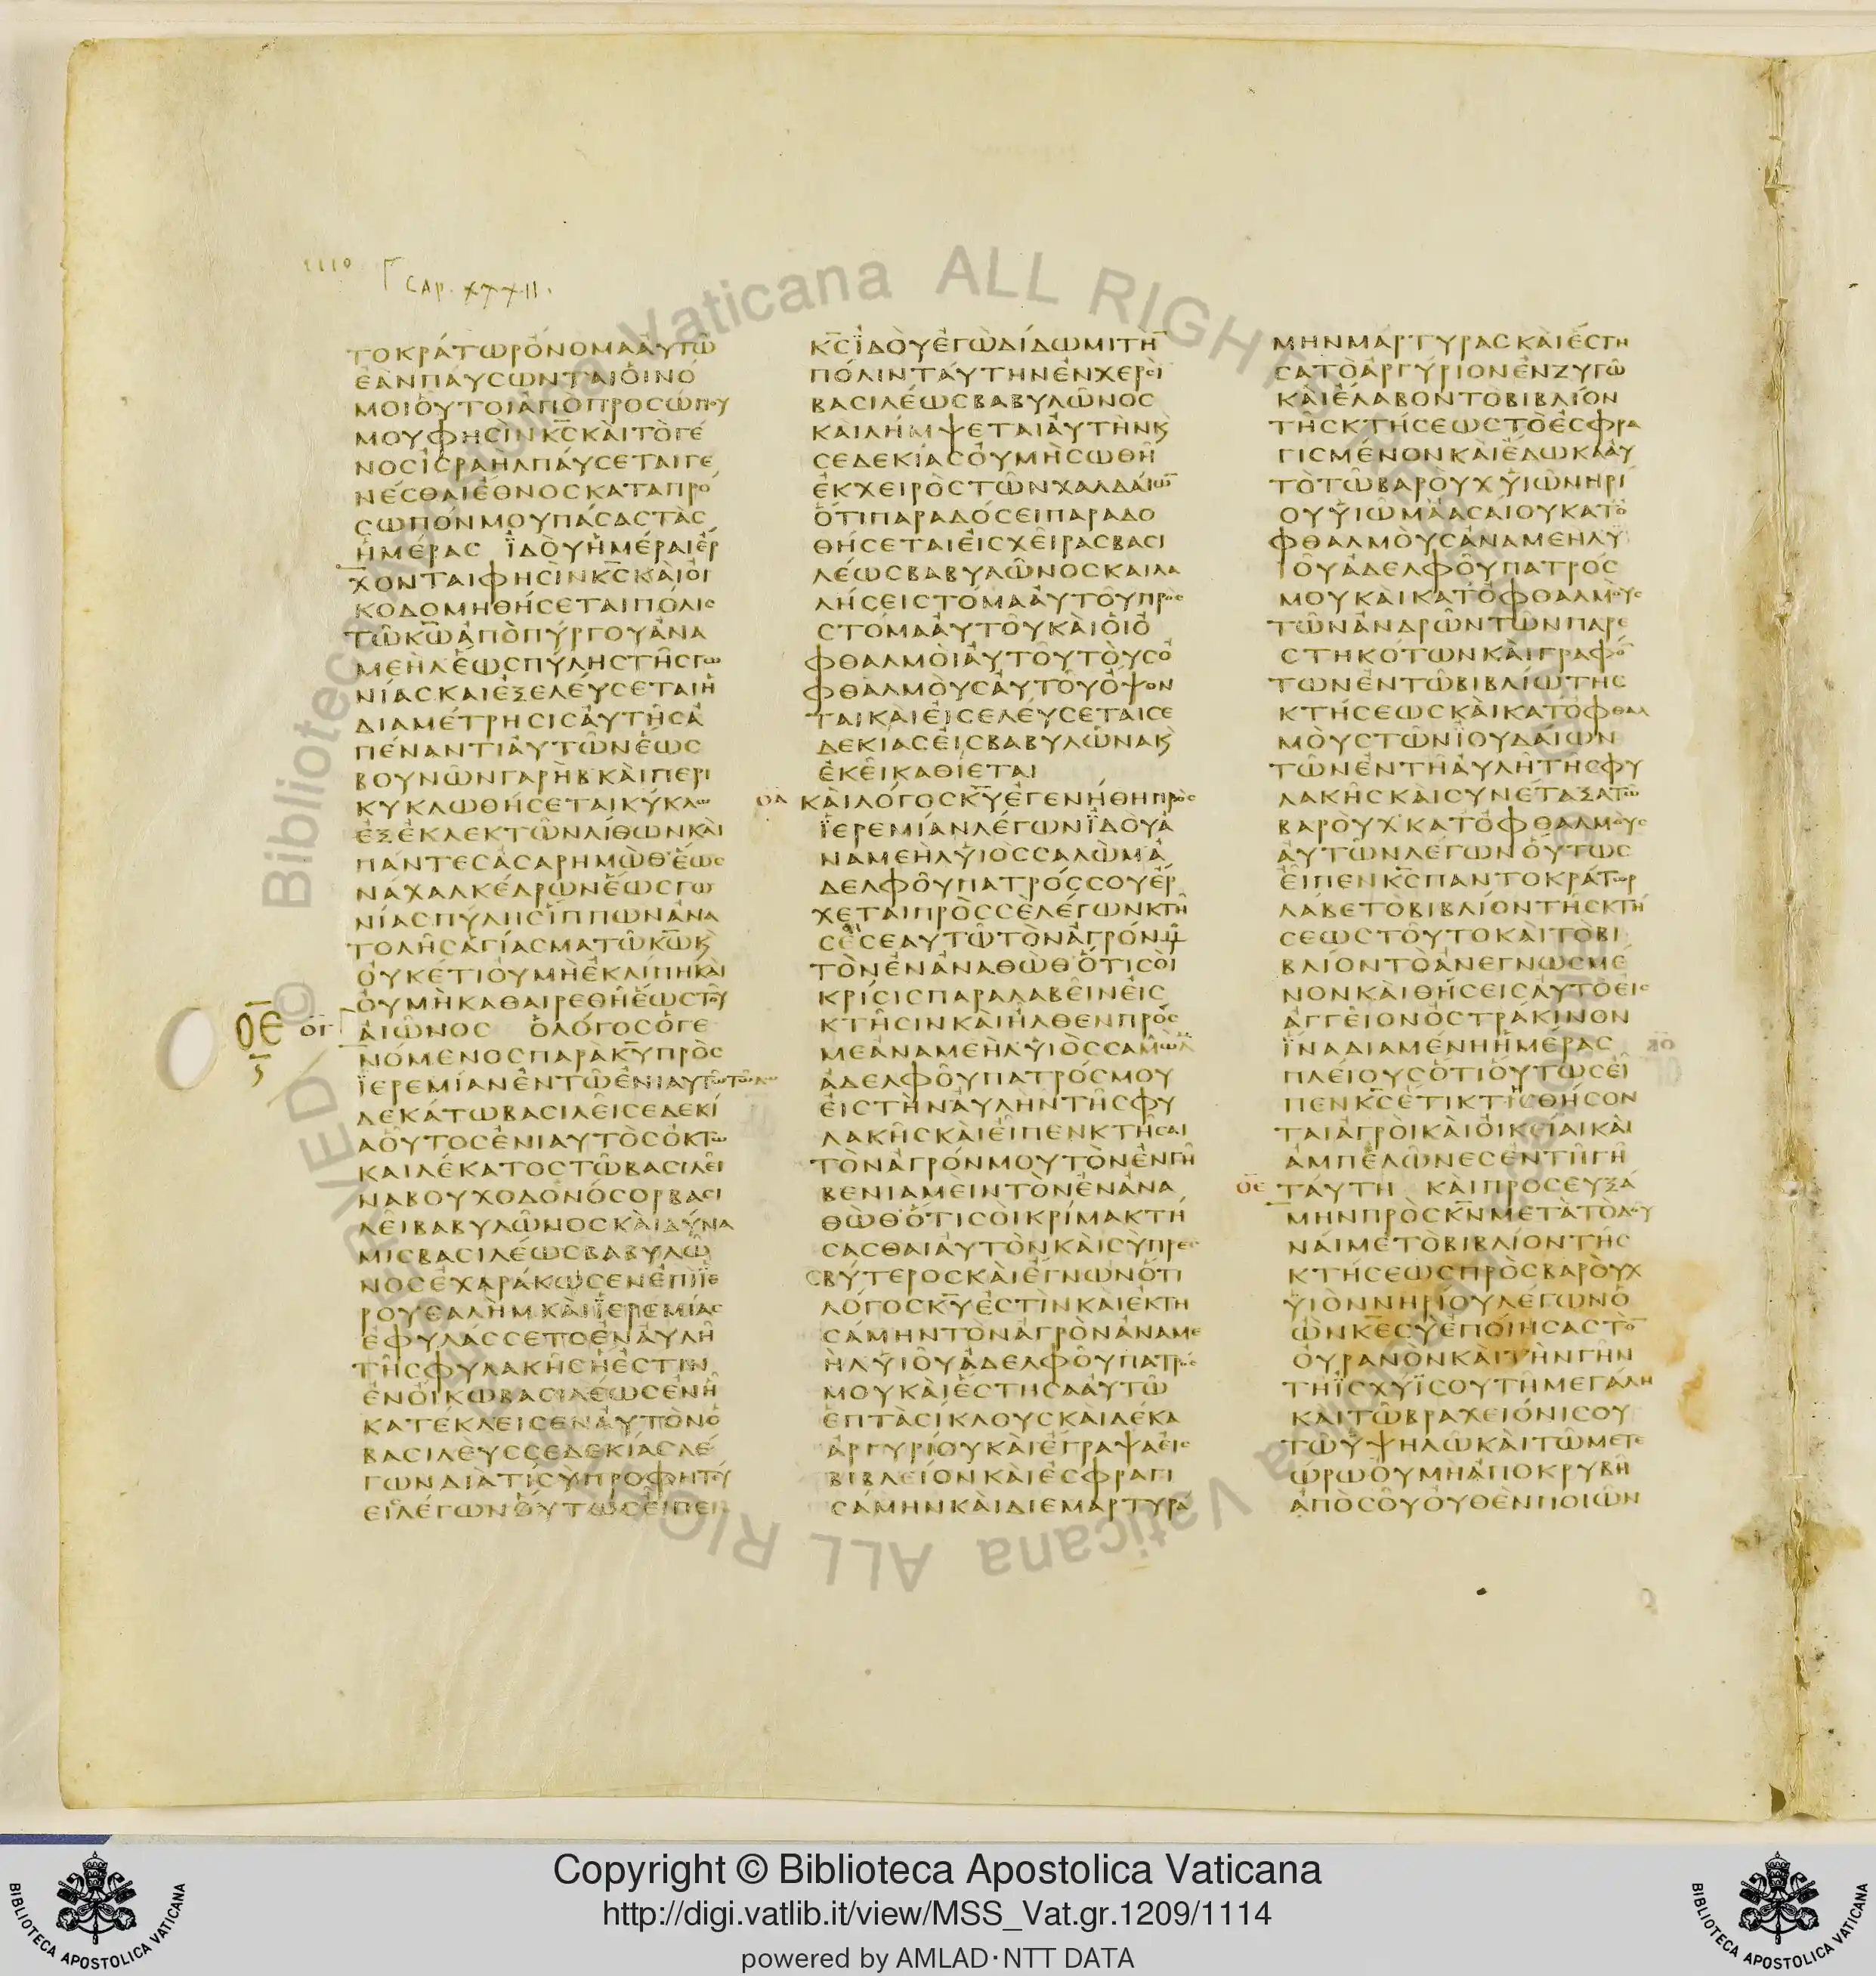 1110
CAP. XXXII.
ΤΟΚΡΑΤΩΡΟΝΟΜΑΑΥΤΩ
ΕΑΝΠΑΥΣΩΝΤΑΙΟΙΝΟ
ΜΟΙΟΥΤΟΙΑΠΟΠΡΟΣΩΠΟΥ
ΜΟΥΦΗΣΙΝΚΣΚΑΙΤΟΓΕ
ΝΟΣΙΣΡΑΗΛΠΑΥΣΕΤΑΙΓΕ
ΝΕΣΘΑΙΕΘΝΟΣΚΑΤΑΠΡΟ
ΣΩΠΟΝΜΟΥΠΑΣΑΣΤΑΣ
ΗΜΕΡΑΣ ΪΔΟΥΗΜΕΡΑΙΕΡ
ΧΟΝΤΑΙΦΗΣΙΝΚΣΚΑΙΟΙ
ΚΟΔΟΜΗΘΗΣΕΤΑΙΠΟΛΙΣ
ΤΩΚΩΑΠΟΠΥΡΓΟΥΑΝΑ
ΜΕΗΛΕΩΣΠΥΛΗΣΤΗΣΓΩ
ΝΙΑΣΚΑΙΕΞΕΛΕΥΣΕΤΑΙΗ
ΔΙΑΜΕΤΡΗΣΙΣΑΥΤΗΣΑ
ΠΕΝΑΝΤΙΑΥΤΩΝΕΩΣ
ΒΟΥΝΩΝΓΑΡΗΒΚΑΙΠΕΡΙ
ΚΥΚΛΩΘΗΣΕΤΑΙΚΥΚΛΩ
ΕΞΕΚΛΕΚΤΩΝΛΙΘΩΝΚΑΙ
ΠΑΝΤΕΣΑΣΑΡΗΜΩΘΕΩΣ
ΝΑΧΑΛΚΕΔΡΩΝΕΩΣΓΩ
ΝΙΑΣΠΥΛΗΣΪΠΠΩΝΑΝΑ
ΤΟΛΗΣΑΓΙΑΣΜΑΤΩΚΩϗ
ΟΥΚΕΤΙΟΥΜΗΕΚΛΙΠΗΚΑΙ
ΟΥΜΗΚΑΘΑΙΡΕΘΗΕΩΣΤΟΥ
ΟΕ ΟΓ ΑΙΩΝΟΣ ΟΛΟΓΟΣΟΓΕ
ΝΟΜΕΝΟΣΠΑΡΑΚΥΠΡΟΣ
ΪΕΡΕΜΙΑΝΕΝΤΩΕΝΙΑΥΤΩΤΩ
ΔΕΚΑΤΩΒΑΣΙΛΕΙΣΕΔΕΚΙ
ΑΟΥΤΟΣΕΝΙΑΥΤΟΣΟΚΤΩ
ΚΑΙΔΕΚΑΤΟΣΤΩΒΑΣΙΛΕΙ
ΝΑΒΟΥΧΟΔΟΝΟΣΟΡΒΑΣΙ
ΛΕΙΒΑΒΥΛΩΝΟΣΚΑΙΔΥΝΑ
ΜΙΣΒΑΣΙΛΕΩΣΒΑΒΥΛΩ
ΝΟΣΕΧΑΡΑΚΩΣΕΝΕΠΙΪΕ
ΡΟΥΣΑΛΗΜΚΑΙΪΕΡΕΜΙΑΣ
ΕΦΥΛΑΣΣΕΤΟΕΝΑΥΛΗ
ΤΗΣΦΥΛΑΚΗΣΗΕΣΤΙΝ
ΕΝΟΙΚΩΒΑΣΙΛΕΩΣΕΝΗ
ΚΑΤΕΚΛΕΙΣΕΝΑΥΤΟΝΟ
ΒΑΣΙΛΕΥΣΣΕΔΕΚΙΑΣΛΕ
ΓΩΝΔΙΑΤΙΣΥΠΡΟΦΗΤΕΥ
ΕΙΣΛΕΓΩΝΟΥΤΩΣΕΙΠΕΝ
ΚΣΪΔΟΥΕΓΩΔΙΔΩΜΙΤΗ
ΠΟΛΙΝΤΑΥΤΗΝΕΝΧΕΡΣΙ
ΒΑΣΙΛΕΩΣΒΑΒΥΛΩΝΟΣ
ΚΑΙΛΗΜΨΕΤΑΙΑΥΤΗΝϗ
ΣΕΔΕΚΙΑΣΟΥΜΗΣΩΘΗ
ΕΚΧΕΙΡΟΣΤΩΝΧΑΛΔΑΙΩ
ΟΤΙΠΑΡΑΔΟΣΕΙΠΑΡΑΔΟ
ΘΗΣΕΤΑΙΕΙΣΧΕΙΡΑΣΒΑΣΙ
ΛΕΩΣΒΑΒΥΛΩΝΟΣΚΑΙΛΑ
ΛΗΣΕΙΣΤΟΜΑΑΥΤΟΥΠΡΟΣ
ΣΤΟΜΑΑΥΤΟΥΚΑΙΟΙΟ
ΦΘΑΛΜΟΙΑΥΤΟΥΤΟΥΣΟ
ΦΘΑΛΜΟΥΣΑΥΤΟΥΟΨΟΝ
ΤΑΙΚΑΙΕΙΣΕΛΕΥΣΕΤΑΙΣΕ
ΔΕΚΙΑΣΕΙΣΒΑΒΥΛΩΝΑϗ
ΕΚΕΙΚΑΘΙΕΤΑΙ
ΟΔ ΚΑΙΛΟΓΟΣΚΥΕΓΕΝΗΘΗΠΡΟΣ
ΪΕΡΕΜΙΑΝΛΕΓΩΝΪΔΟΥΑ
ΝΑΜΕΗΛΥΙΟΣΣΑΛΩΜΑ
ΔΕΛΦΟΥΠΑΤΡΟΣΣΟΥΕΡ
ΧΕΤΑΙΠΡΟΣΣΕΛΕΓΩΝΚΤΗ
ΣΕΣΕΑΥΤΩΤΟΝΑΓΡΟΝΜΟΥ
ΤΟΝΕΝΑΝΑΘΩΘΟΤΙΣΟΙ
ΚΡΙΣΙΣΠΑΡΑΛΑΒΕΙΝΕΙΣ
ΚΤΗΣΙΝΚΑΙΗΛΘΕΝΠΡΟΣ
ΜΕΑΝΑΜΕΗΛΥΙΟΣΣΑΛΩΜ
ΑΔΕΛΦΟΥΠΑΤΡΟΣΜΟΥ
ΕΙΣΤΗΝΑΥΛΗΝΤΗΣΦΥ
ΛΑΚΗΣΚΑΙΕΙΠΕΝΚΤΗΣΑΙ
ΤΟΝΑΓΡΟΝΜΟΥΤΟΝΕΝΓΗ
ΒΕΝΙΑΜΕΙΝΤΟΝΕΝΑΝΑ
ΘΩΘΟΤΙΣΟΙΚΡΙΜΑΚΤΗ
ΣΑΣΘΑΙΑΥΤΟΝΚΑΙΣΥΠΡΕΣ
ΒΥΤΕΡΟΣΚΑΙΕΓΝΩΝΟΤΙ
ΛΟΓΟΣΚΥΕΣΤΙΝΚΑΙΕΚΤΗ
ΣΑΜΗΝΤΟΝΑΓΡΟΝΑΝΑΜΕ
ΗΛΥΙΟΥΑΔΕΛΦΟΥΠΑΤΡΟΣ
ΜΟΥΚΑΙΕΣΤΗΣΑΑΥΤΩ
ΕΠΤΑΣΙΚΛΟΥΣΚΑΙΔΕΚΑ
ΑΡΓΥΡΙΟΥΚΑΙΕΓΡΑΨΑΕΙΣ
ΒΙΒΛΕΙΟΝΚΑΙΕΣΦΡΑΓΙ
ΣΑΜΗΝΚΑΙΔΙΕΜΑΡΤΥΡΑ
ΜΗΝΜΑΡΤΥΡΑΣΚΑΙΕΣΤΗ
ΣΑΤΟΑΡΓΥΡΙΟΝΕΝΖΥΓΩ
ΚΑΙΕΛΑΒΟΝΤΟΒΙΒΛΙΟΝ
ΤΗΣΚΤΗΣΕΩΣΤΟΕΣΦΡΑ
ΓΙΣΜΕΝΟΝΚΑΙΕΔΩΚΑΑΥ
ΤΟΤΩΒΑΡΟΥΧΥΙΩΝΗΡΙ
ΟΥΥΙΩΜΑΑΣΑΙΟΥΚΑΤΟ
ΦΘΑΛΜΟΥΣΑΝΑΜΕΗΛΥ
ΙΟΥΑΔΕΛΦΟΥΠΑΤΡΟΣ
ΜΟΥΚΑΙΚΑΤΟΦΘΑΛΜΟΥΣ
ΤΩΝΑΝΔΡΩΝΤΩΝΠΑΡΕ
ΣΤΗΚΟΤΩΝΚΑΙΓΡΑΦΟ
ΤΩΝΕΝΤΩΒΙΒΛΙΩΤΗΣ
ΚΤΗΣΕΩΣΚΑΙΚΑΤΟΦΘΑΛ
ΜΟΥΣΤΩΝΪΟΥΔΑΙΩΝ
ΤΩΝΕΝΤΗΑΥΛΗΤΗΣΦΥ
ΛΑΚΗΣΚΑΙΣΥΝΕΤΑΞΑΤΩ
ΒΑΡΟΥΧΚΑΤΟΦΘΑΛΜΟΥΣ
ΑΥΤΩΝΛΕΓΩΝΟΥΤΩΣ
ΕΙΠΕΝΚΣΠΑΝΤΟΚΡΑΤΩΡ
ΛΑΒΕΤΟΒΙΒΛΙΟΝΤΗΣΚΤΗ
ΣΕΩΣΤΟΥΤΟΚΑΙΤΟΒΙ
ΒΛΙΟΝΤΟΑΝΕΓΝΩΣΜΕ
ΝΟΝΚΑΙΘΗΣΕΙΣΑΥΤΟΕΙΣ
ΑΓΓΕΙΟΝΟΣΤΡΑΚΙΝΟΝ
ΪΝΑΔΙΑΜΕΝΗΗΜΕΡΑΣ
ΠΛΕΙΟΥΣΟΤΙΟΥΤΩΣΕΙ
ΠΕΝΚΣΕΤΙΚΤΙΣΘΗΣΟΝ
ΤΑΙΑΓΡΟΙΚΑΙΟΙΚΕΙΑΙΚΑΙ
ΑΜΠΕΛΩΝΕΣΕΝΤΗΓΗ
ΟΕ ΤΑΥΤΗ ΚΑΙΠΡΟΣΕΥΞΑ
ΜΗΝΠΡΟΣΚΝΜΕΤΑΤΟΔΟΥ
ΝΑΙΜΕΤΟΒΙΒΛΙΟΝΤΗΣ
ΚΤΗΣΕΩΣΠΡΟΣΒΑΡΟΥΧ
ΥΙΟΝΝΗΡΙΟΥΛΕΓΩΝΟ
ΩΝΚΕΣΥΕΠΟΙΗΣΑΣΤΟ
ΟΥΡΑΝΟΝΚΑΙΤΗΝΓΗΝ
ΤΗΪΣΧΥΪΣΟΥΤΗΜΕΓΑΛΗ
ΚΑΙΤΩΒΡΑΧΕΙΟΝΙΣΟΥ
ΤΩΥΨΗΛΩΚΑΙΤΩΜΕΤΕ
ΩΡΩΟΥΜΗΑΠΟΚΡΥΒΗ
ΑΠΟΣΟΥΟΥΘΕΝΠΟΙΩΝ
© Biblioteca Apostolica Vaticana ALL RIGHTS RESERVED
Copyright © Biblioteca Apostolica Vaticana
http://digi.vatlib.it/view/MSS_Vat.gr.1209/1114
powered by AMLAD·NTT DATA
BIBLIOTECA APOSTOLICA VATICANA
BIBLIOTECA APOSTOLICA VATICANA